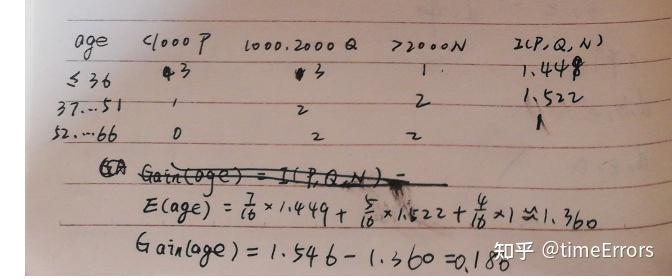 age <1000 P 1000..2000 Q >2000 N I(P,Q,N)
≤36 3 3 1 1.449
37...51 1 2 2 1.522
52...66 0 2 2 1
Gain(age) = I(P,Q,N) -
E(age) = 7/16 × 1.449 + 5/16 × 1.522 + 4/16 × 1 ≈ 1.360
Gain(age) = 1.546 - 1.360 = 0.186
知乎 @timeErrors